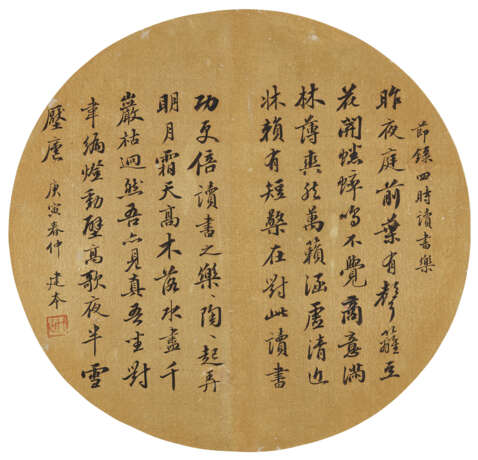 節錄四時讀書樂
昨夜庭前葉有聲籬豆
花開蟋蟀鳴不覺商意滿
林薄爽然萬籟涵虛清近
牀賴有短檠在對此讀書
功更倍讀書之樂〻陶〻起弄
明月霜天高木落水盡千
巖枯迥然吾亦見真吾坐對
韋編燈動壁高歌夜半雪
壓廬 庚寅春仲 建本